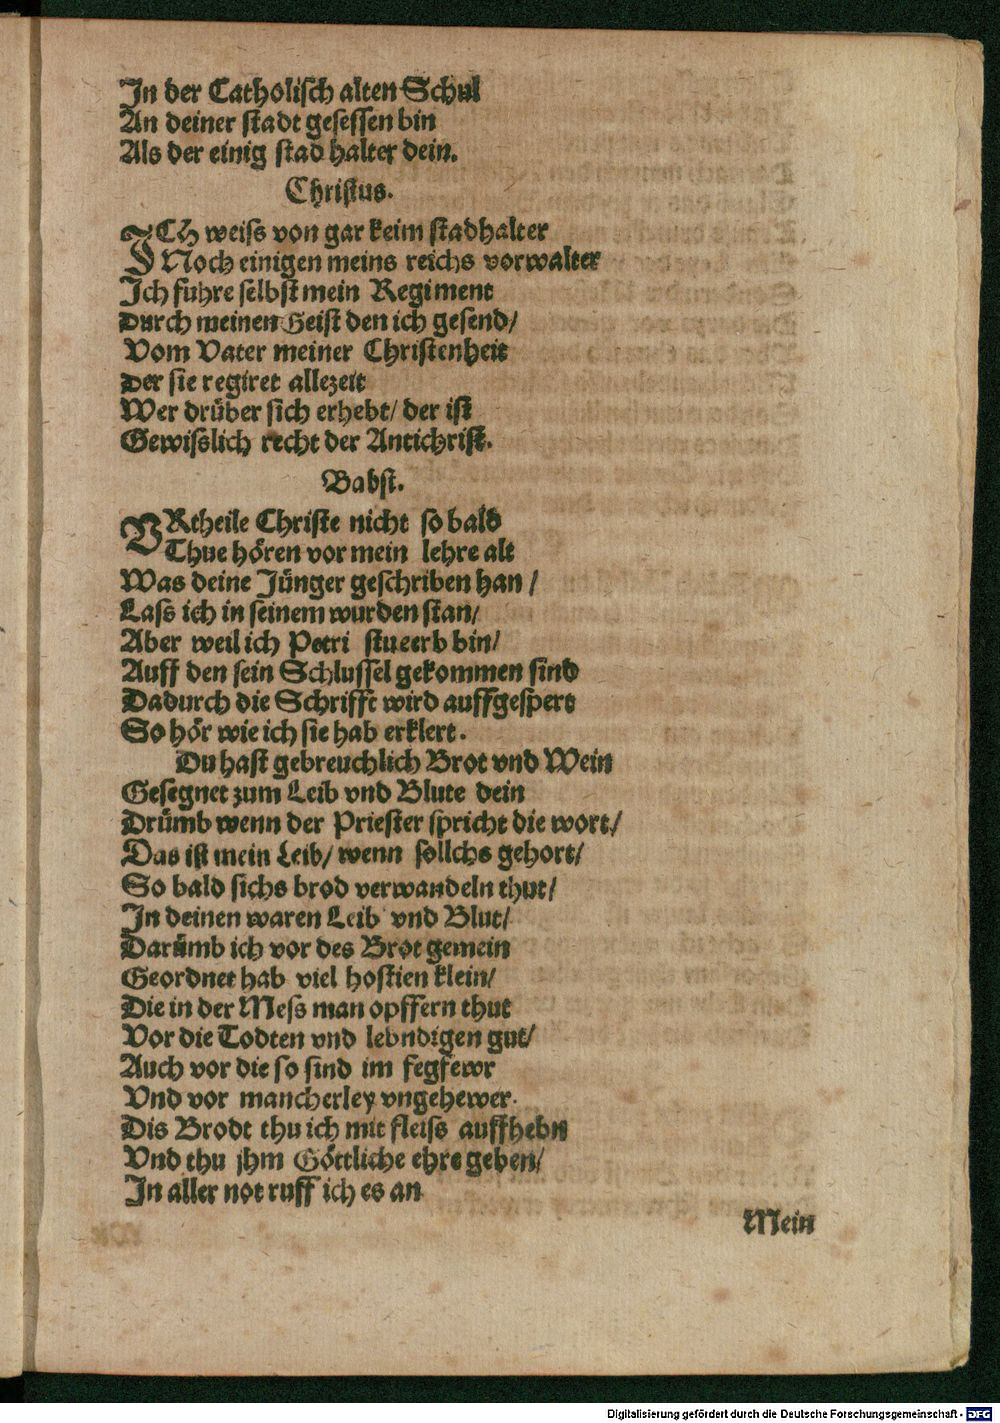 In der Catholisch alten Schul
An deiner stadt gesessen bin
Als der einig stad halter dein.
Christus.
ICh weiss von gar keim stadhalter
Noch einigen meins reichs vorwalter
Ich fuhre selbst mein Regiment
Durch meinen Geist den ich gesend/
Vom Vater meiner Christenheit
Der sie regiret allezeit
Wer drüber sich erhebt/ der ist
Gewisslich recht der Antichrist.
Babst.
VRtheile Christe nicht so bald
Thue hören vor mein lehre alt
Was deine Jünger geschriben han /
Lass ich in seinem wurden stan/
Aber weil ich Petri stueerb bin/
Auff den sein Schlussel gekommen sind
Dadurch die Schrifft wird auffgespert
So hör wie ich sie hab erklert.
Du hast gebreuchlich Brot vnd Wein
Gesegnet zum Leib vnd Blute dein
Drümb wenn der Priester spricht die wort/
Das ist mein Leib/ wenn sollchs gehort/
So bald sichs brod verwandeln thut/
In deinen waren Leib vnd Blut/
Darümb ich vor des Brot gemein
Geordnet hab viel hostien klein/
Die in der Mess man opffern thut
Vor die Todten vnd lebndigen gut/
Auch vor die so sind im fegfewr
Vnd vor mancherley vngehewer.
Dis Brodt thu ich mit fleiss auffhebn
Vnd thu jhm Göttliche ehre geben/
In aller not ruff ich es an
Mein
Digitalisierung gefördert durch die Deutsche Forschungsgemeinschaft - DFG